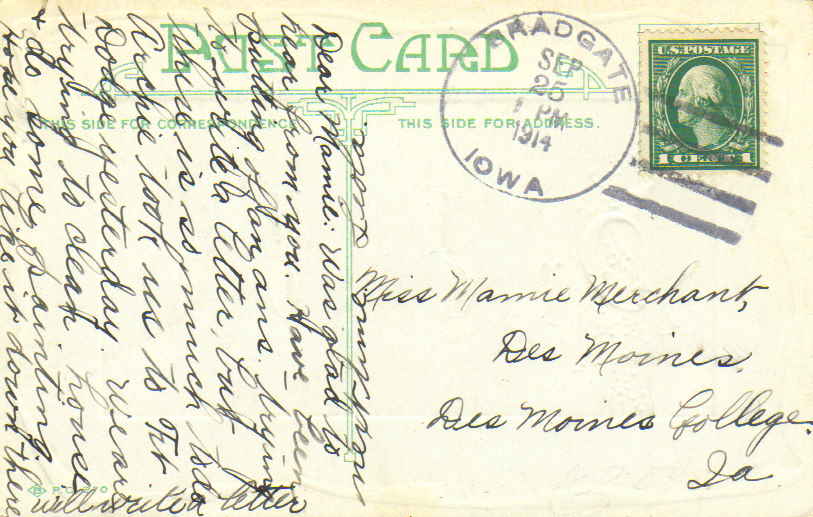 POST CARD
THIS SIDE FOR CORRESPONDENCE.
THIS SIDE FOR ADDRESS.
BRADGATE
SEP
25
1 PM
1914
IOWA
U.S. POSTAGE
1 CENT 1
Miss Mamie Merchant,
Des Moines,
Des Moines College.
Ia.
Dear Mamie: Was glad to
hear from you. Have been
putting off an ans. trying
to write a letter, but
there is so much to do
Archie took us to Ft
Dodge yesterday. We are
trying to clean house
& do some painting
Hope you like it down there
will write a letter